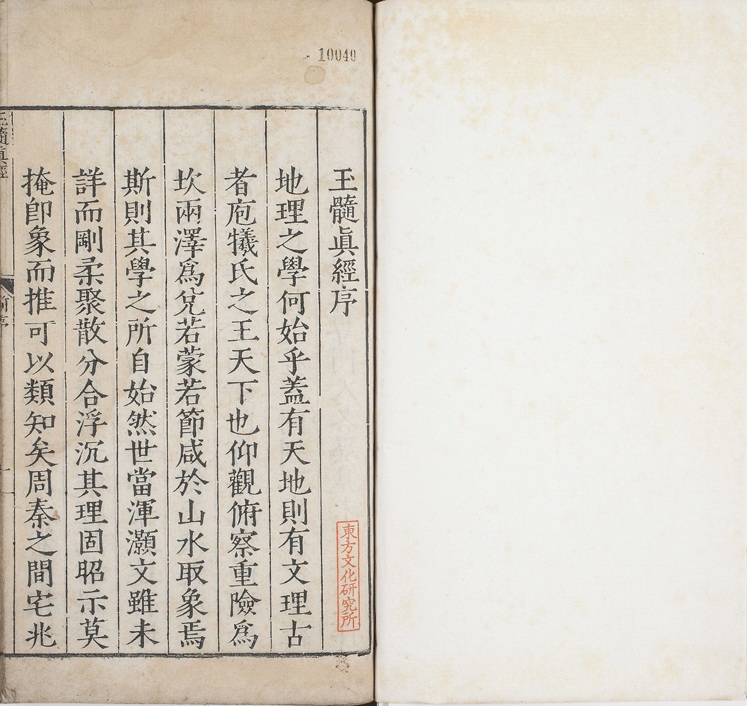 10040
玉髓眞經序
地理之學何始乎蓋有天地則有文理古
者庖犧氏之王天下也仰觀俯察重險爲
坎兩澤爲兌若蒙若節咸於山水取象焉
斯則其學之所自始然世當渾灝文雖未
詳而剛柔聚散分合浮沉其理固昭示莫
掩卽象而推可以類知矣周秦之間宅兆
東方文化研究所
玉髓眞經
前序